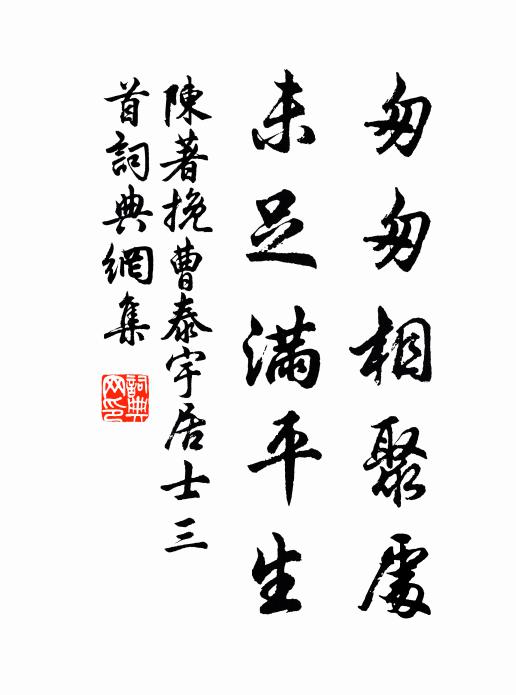 匆匆相聚處
未足滿平生
陳著挽曹泰宇居士三
首詞典網集
詞典
网印